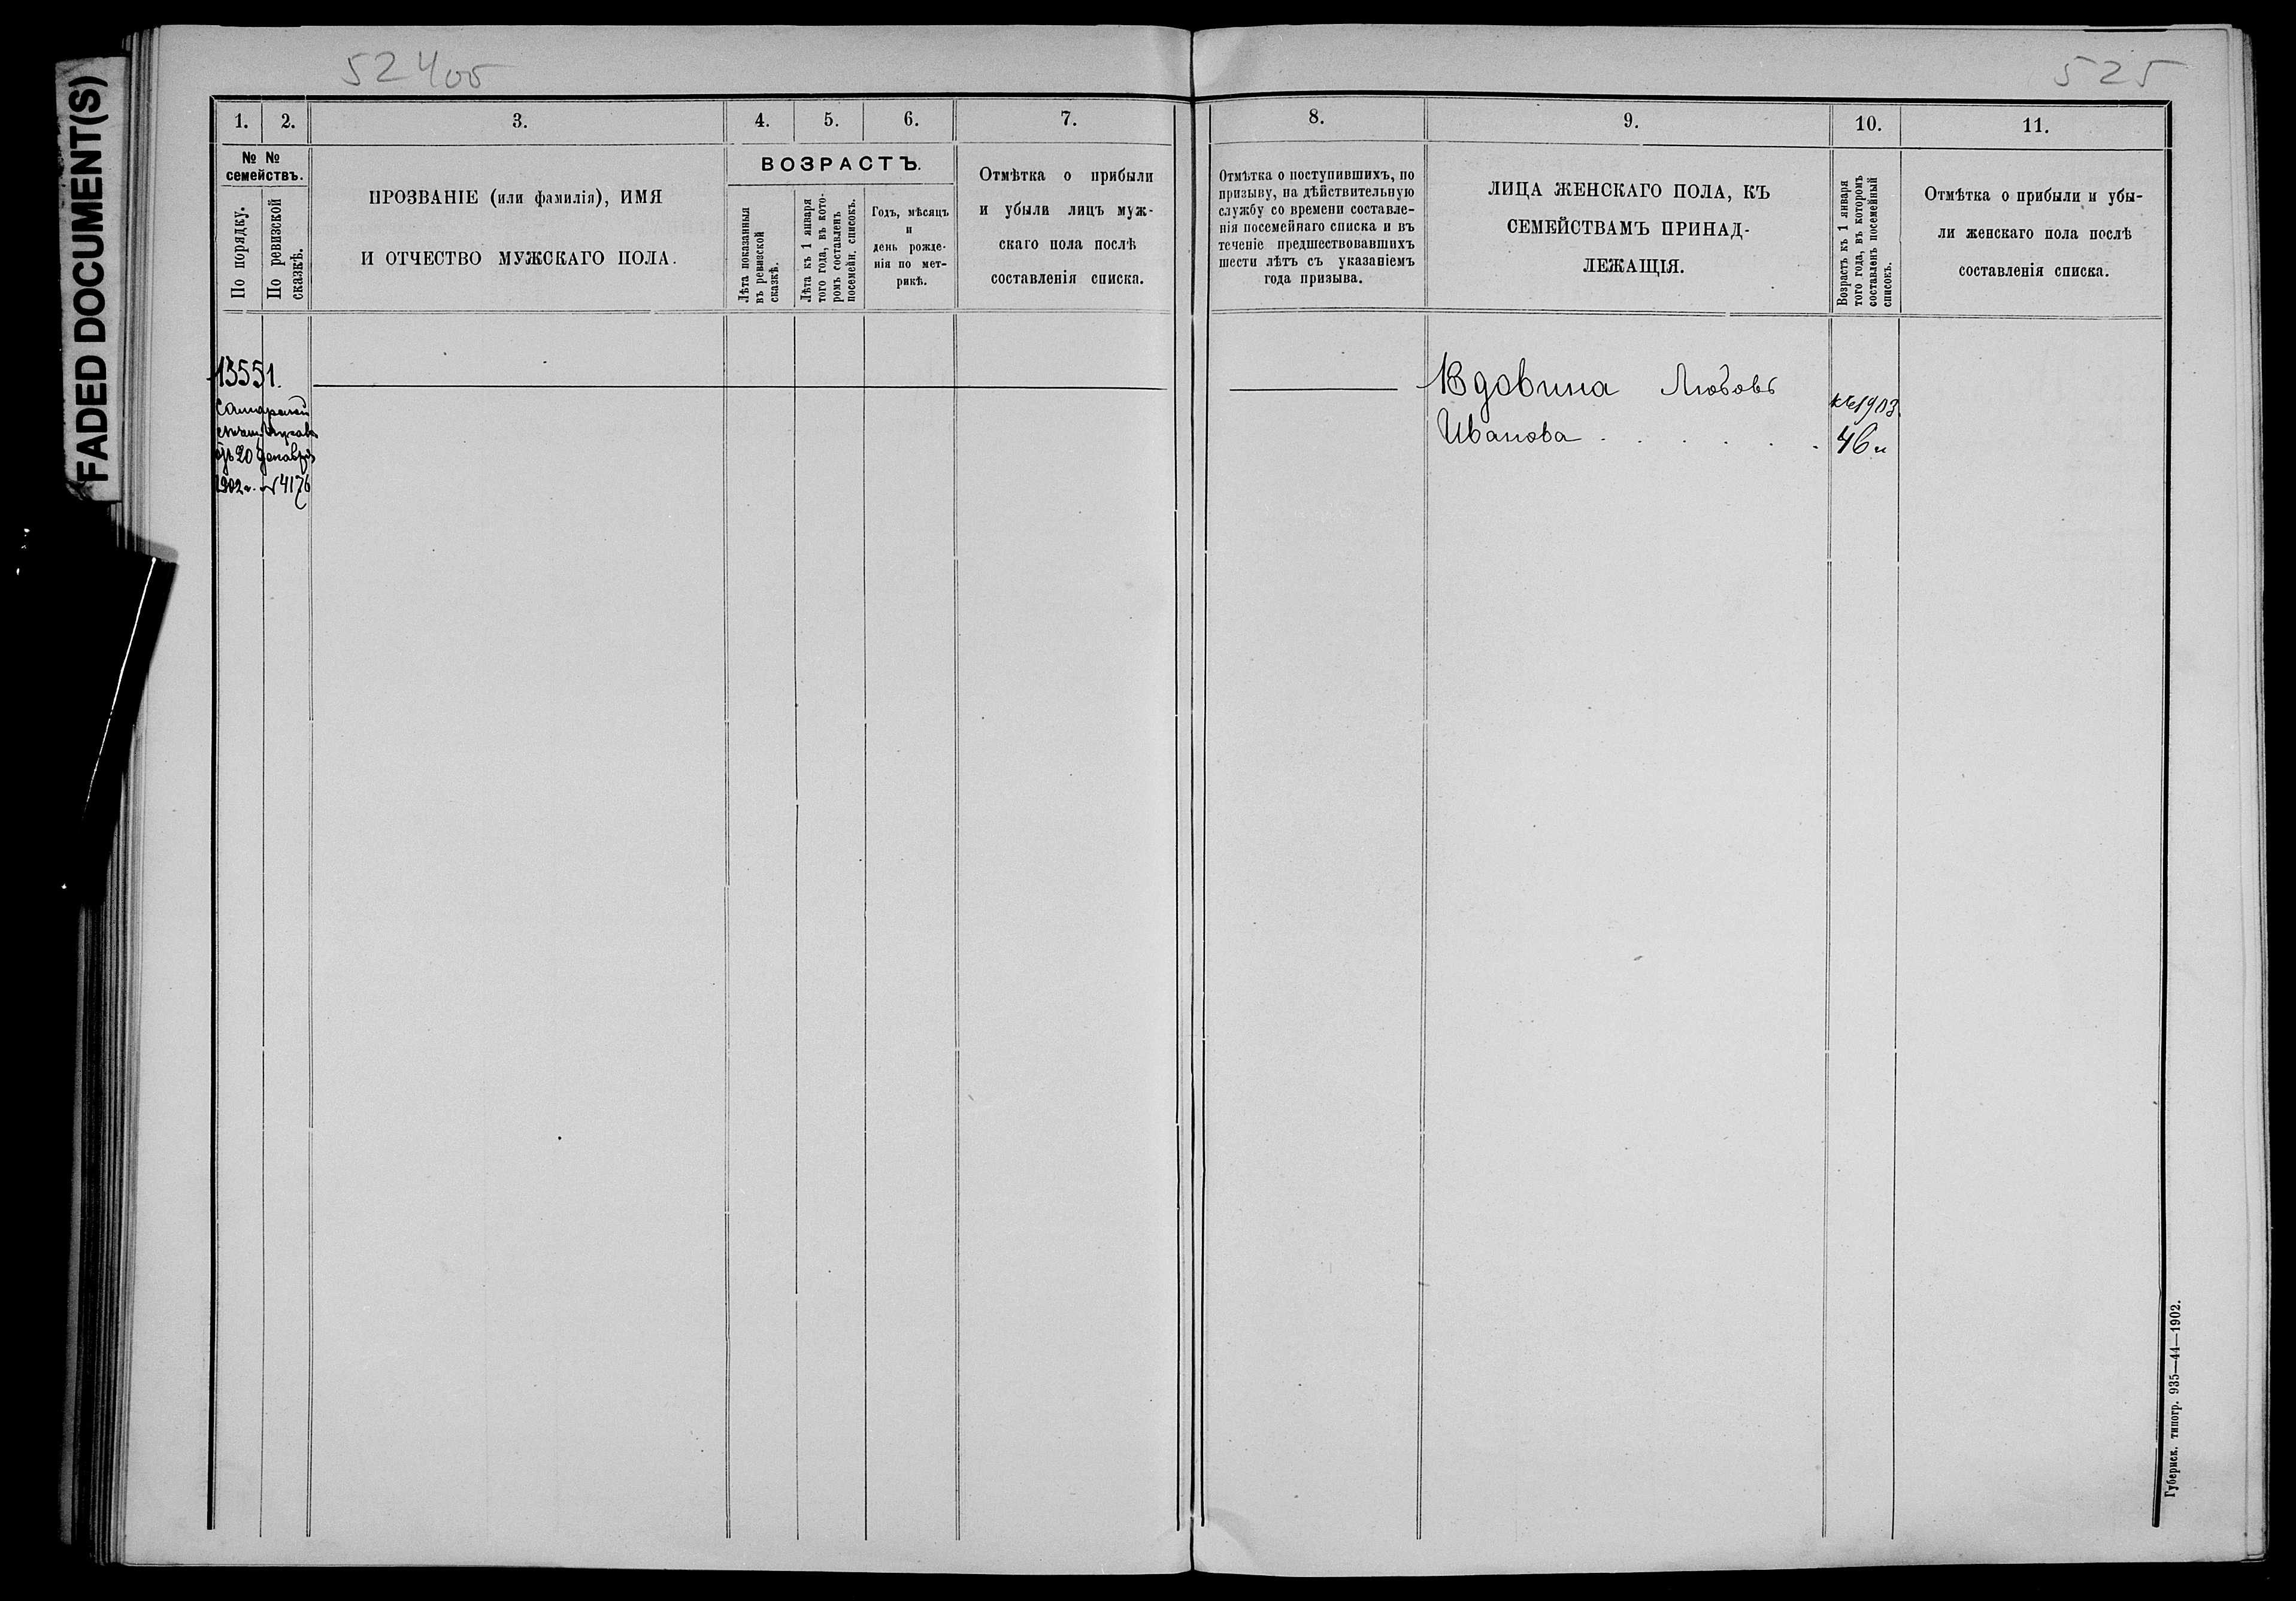 FADED DOCUMENT(S)
524об
525
1. 2. 3. 4. 5. 6. 7.
№ № семействъ.
По порядку.
По ревизской сказкѣ.
ПРОЗВАНІЕ (или фамилія), ИМЯ
И ОТЧЕСТВО МУЖСКАГО ПОЛА.
ВОЗРАСТЪ.
Лѣта показанныя
въ ревизской
сказкѣ.
Лѣта къ 1 января
того года, въ кото-
ромъ составленъ
посемейн. списокъ.
Годъ, мѣсяцъ
и
день рожде-
нія по мет-
рикѣ.
Отмѣтка о прибыли
и убыли лицъ муж-
скаго пола послѣ
составленія списка.
8. 9. 10. 11.
Отмѣтка о поступившихъ, по
призыву, на дѣйствительную
службу со времени составле-
нія посемейнаго списка и въ
теченіе предшествовавшихъ
шести лѣтъ съ указаніемъ
года призыва.
ЛИЦА ЖЕНСКАГО ПОЛА, КЪ
СЕМЕЙСТВАМЪ ПРИНАД-
ЛЕЖАЩІЯ.
Возрастъ къ 1 января
того года, въ которомъ
составленъ посемейный
списокъ.
Отмѣтка о прибыли и убы-
ли женскаго пола послѣ
составленія списка.
13551.
20 декабря
1902 г. № 4176
Вдовина Любовь
Иванова . . . . . .
къ 1903
46
Губернск. типогр. 935—44—1902.